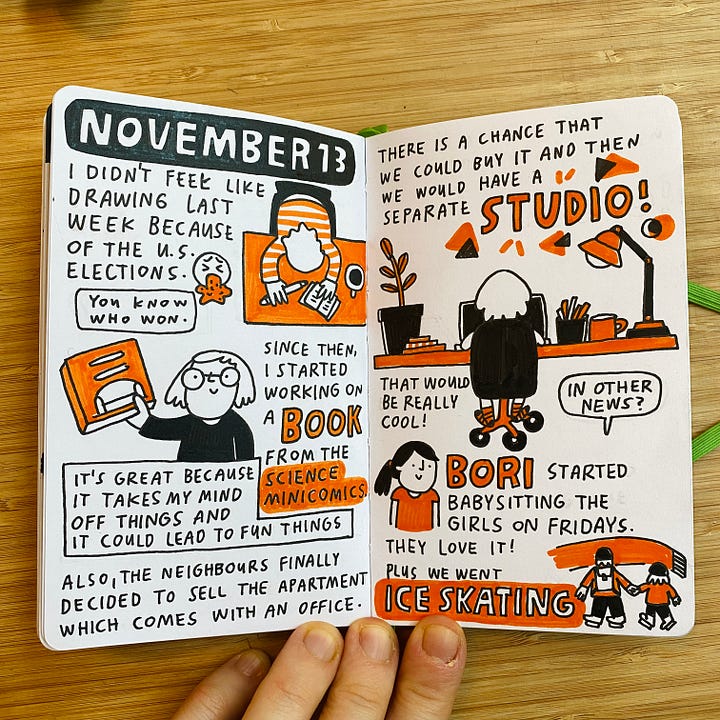 NOVEMBER 13
I DIDN'T FEEL LIKE
DRAWING LAST
WEEK BECAUSE
OF THE U.S.
ELECTIONS.
YOU KNOW
WHO WON.
SINCE THEN,
I STARTED
WORKING ON
A BOOK
FROM THE
SCIENCE
MINICOMICS.
IT'S GREAT BECAUSE
IT TAKES MY MIND
OFF THINGS AND
IT COULD LEAD TO FUN THINGS
ALSO, THE NEIGHBOURS FINALLY
DECIDED TO SELL THE APARTMENT
WHICH COMES WITH AN OFFICE.
THERE IS A CHANCE THAT
WE COULD BUY IT AND THEN
WE WOULD HAVE A
SEPARATE STUDIO!
THAT WOULD
BE REALLY
COOL!
IN OTHER
NEWS?
BORI STARTED
BABYSITTING THE
GIRLS ON FRIDAYS.
THEY LOVE IT!
PLUS WE WENT
ICE SKATING